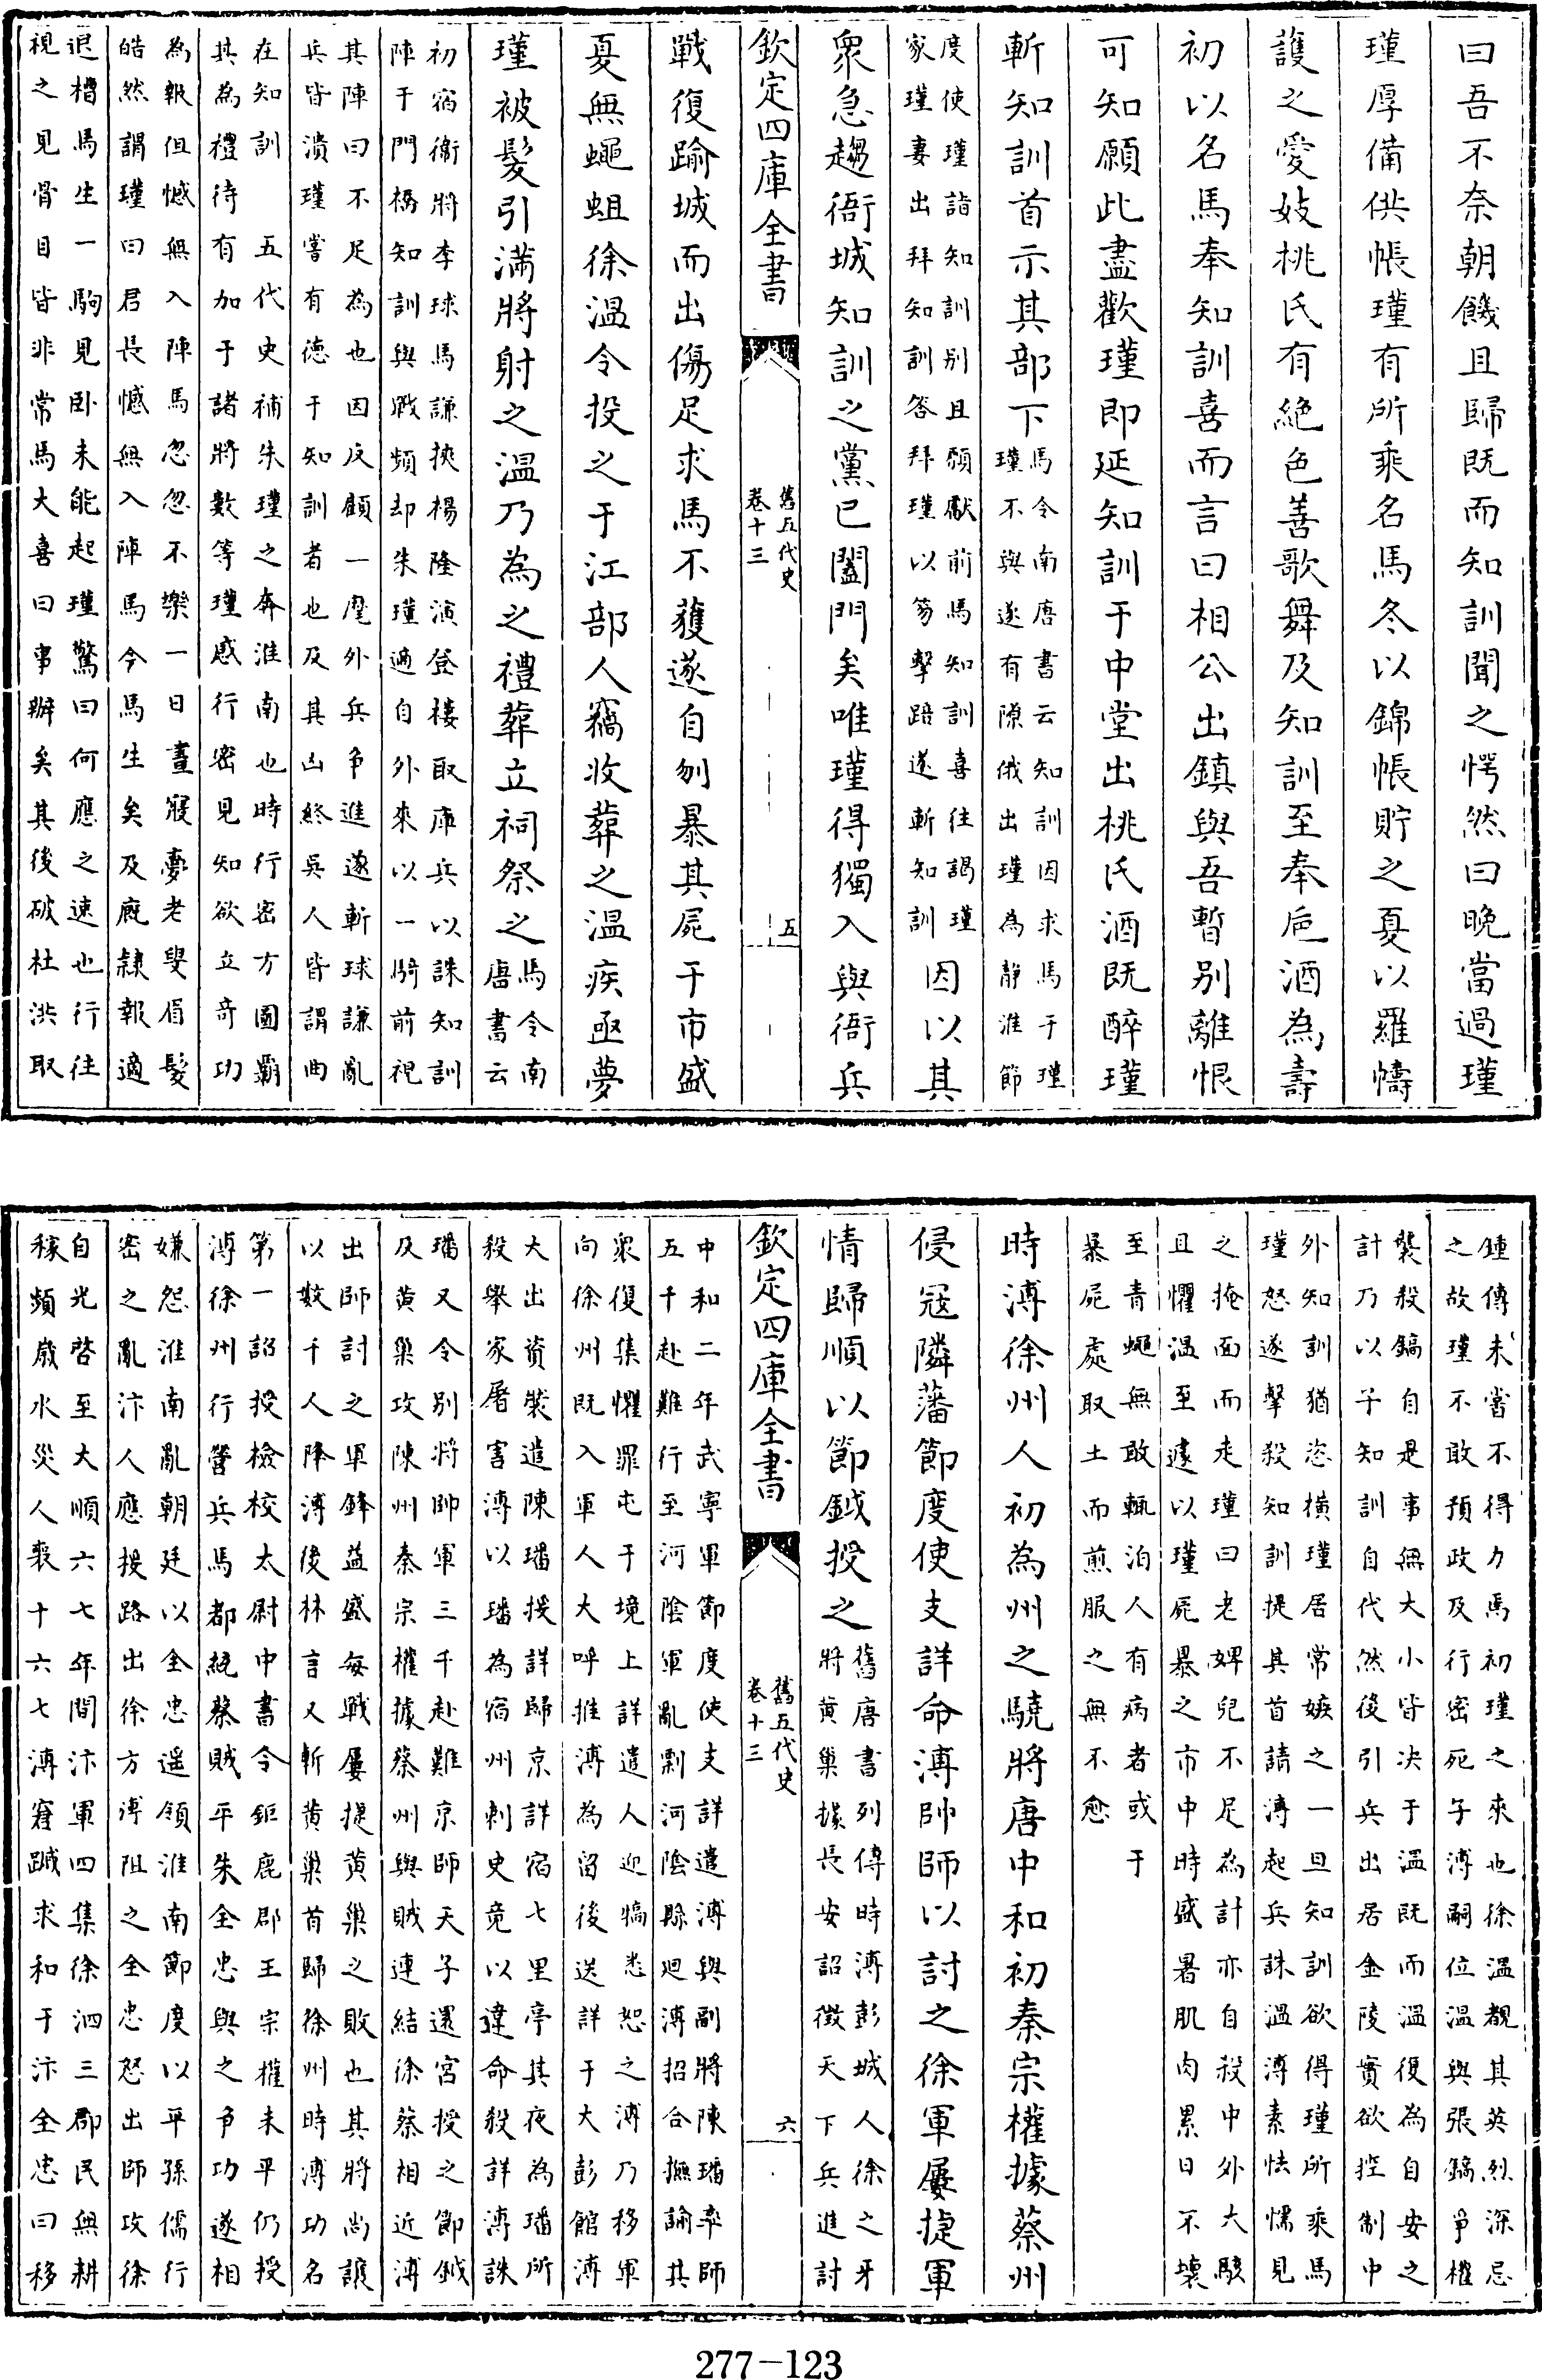 曰吾不奈朝饑且歸既而知訓聞之愕然曰晚當過瑾
瑾厚備供帳瑾有所乘名馬冬以錦帳貯之夏以羅幬
護之愛妓桃氏有絕色善歌舞及知訓至奉巵酒為壽
初以名馬奉知訓喜而言曰相公出鎮與吾暫别離恨
可知願此盡歡瑾即延知訓于中堂出桃氏酒既醉瑾
斬知訓首示其部下
馬令南唐書云知訓因求馬于瑾
瑾不與遂有隙俄出瑾為靜淮節
度使瑾詣知訓别且願獻前馬知訓喜往謁瑾
家瑾妻出拜知訓答拜瑾以笏擊踣遂斬知訓
因以其
衆急趨衙城知訓之黨已闔門矣唯瑾得獨入與衙兵
欽定四庫全書
舊五代史
卷十三
五
戰復踰城而出傷足求馬不獲遂自刎暴其屍于市盛
夏無蠅蛆徐温令投之于江部人竊收葬之温疾亟夢
瑾被髮引滿將射之温乃為之禮葬立祠祭之
馬令南
唐書云
初宿衞將李球馬謙挾楊隆演登樓取庫兵以誅知訓
陣于門橋知訓與戰頻却朱瑾適自外來以一騎前視
其陣曰不足為也因反顧一麾外兵争進遂斬球謙亂
兵皆潰瑾嘗有德于知訓者也及其凶終吳人皆謂曲
在知訓 五代史補朱瑾之奔淮南也時行密方圖霸
其為禮待有加于諸將數等瑾感行密見知欲立奇功
為報但憾無入陣馬忽忽不樂一日晝寢夢老叟眉髮
皓然謂瑾曰君長憾無入陣馬今馬生矣及廐隸報適
退槽馬生一駒見卧未能起瑾驚曰何應之速也行往
視之見骨目皆非常馬大喜曰事辦矣其後破杜洪取
鍾傳未嘗不得力焉初瑾之來也徐温覩其英烈深忌
之故瑾不敢預政及行密死子溥嗣位温與張鎬爭權
襲殺鎬自是事無大小皆决于温既而温復為自安之
計乃以子知訓自代然後引兵出居金陵實欲控制中
外知訓猶恣横瑾居常嫉之一旦知訓欲得瑾所乘馬
瑾怒遂擊殺知訓提其首請溥起兵誅温溥素怯懦見
之掩面而走瑾曰老婢兒不足為計亦自殺中外大駭
且懼温至遽以瑾屍暴之市中時盛暑肌肉累日不壞
至青蠅無敢輒泊人有病者或于
暴屍處取土而煎服之無不愈
時溥徐州人初為州之驍將唐中和初秦宗權據蔡州
侵寇隣藩節度使支詳命溥帥師以討之徐軍屢捷軍
情歸順以節鉞授之
舊唐書列傳時溥彭城人徐之牙
將黄巢據長安詔徵天下兵進討
欽定四庫全書
舊五代史
卷十三
六
中和二年武寧軍節度使支詳遣溥與副將陳璠率師
五千赴難行至河陰軍亂剽河陰縣迴溥招合撫諭其
衆復集懼罪屯于境上詳遣人迎犒悉恕之溥乃移軍
向徐州既入軍人大呼推溥為留後送詳于大彭館溥
大出資裝遣陳璠援詳歸京詳宿七里亭其夜為璠所
殺舉家屠害溥以璠為宿州刺史竟以違命殺詳溥誅
璠又令别將帥軍三千赴難京師天子還宮授之節鉞
及黄巢攻陳州秦宗權據蔡州與賊連結徐蔡相近溥
出師討之軍鋒益盛每戰屢捷黄巢之敗也其將尚讓
以數千人降溥後林言又斬黄巢首歸徐州時溥功名
第一詔授檢校太尉中書令鉅鹿郡王宗權未平仍授
溥徐州行營兵馬都統蔡賊平朱全忠與之争功遂相
嫌怨淮南亂朝廷以全忠遥領淮南節度以平孫儒行
密之亂汴人應援路出徐方溥阻之全忠怒出師攻徐
自光啓至大順六七年間汴軍四集徐泗三郡民無耕
稼頻歲水災人喪十六七溥窘蹴求和于汴全忠曰移
277-123